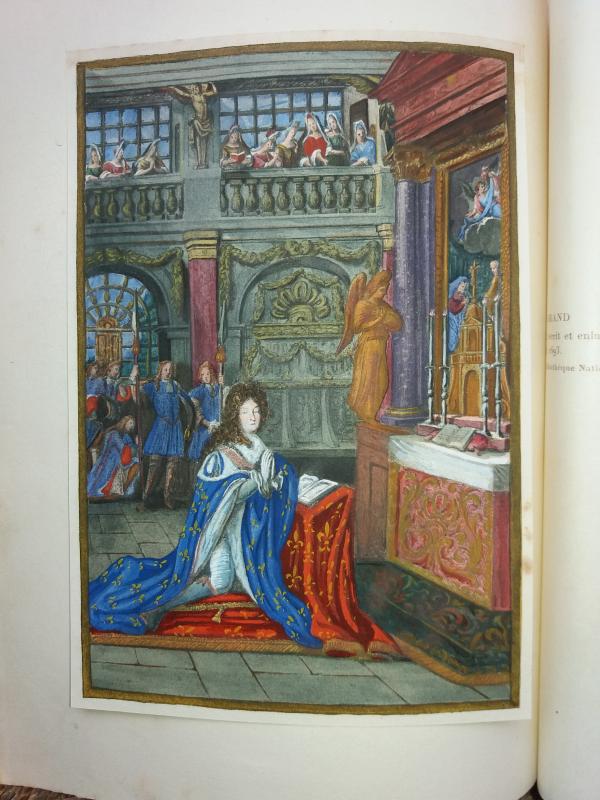 RAND
crit et enlu
1693.
liothèque Nati